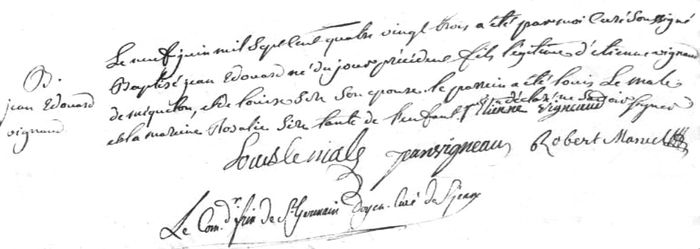 B.
jean Edouard
vignaud
Le neuf juin mil Sept Cent quatre vingt trois a été par moi Curé Soussigné
Baptisé jean Edouard né du jour précédent fils légitime d'étienne vignaud
de miquelon, et de louise Sire Son épouse. le parein a été louis Le male
et la mareine Rosalie Sire tante de l'enfant qui a déclaré ne Savoir Signer
Etienne Vigneaud
Louis le male jean vigneau Robert Manuel
Le Com. d'. de St Germain Doyen Curé de